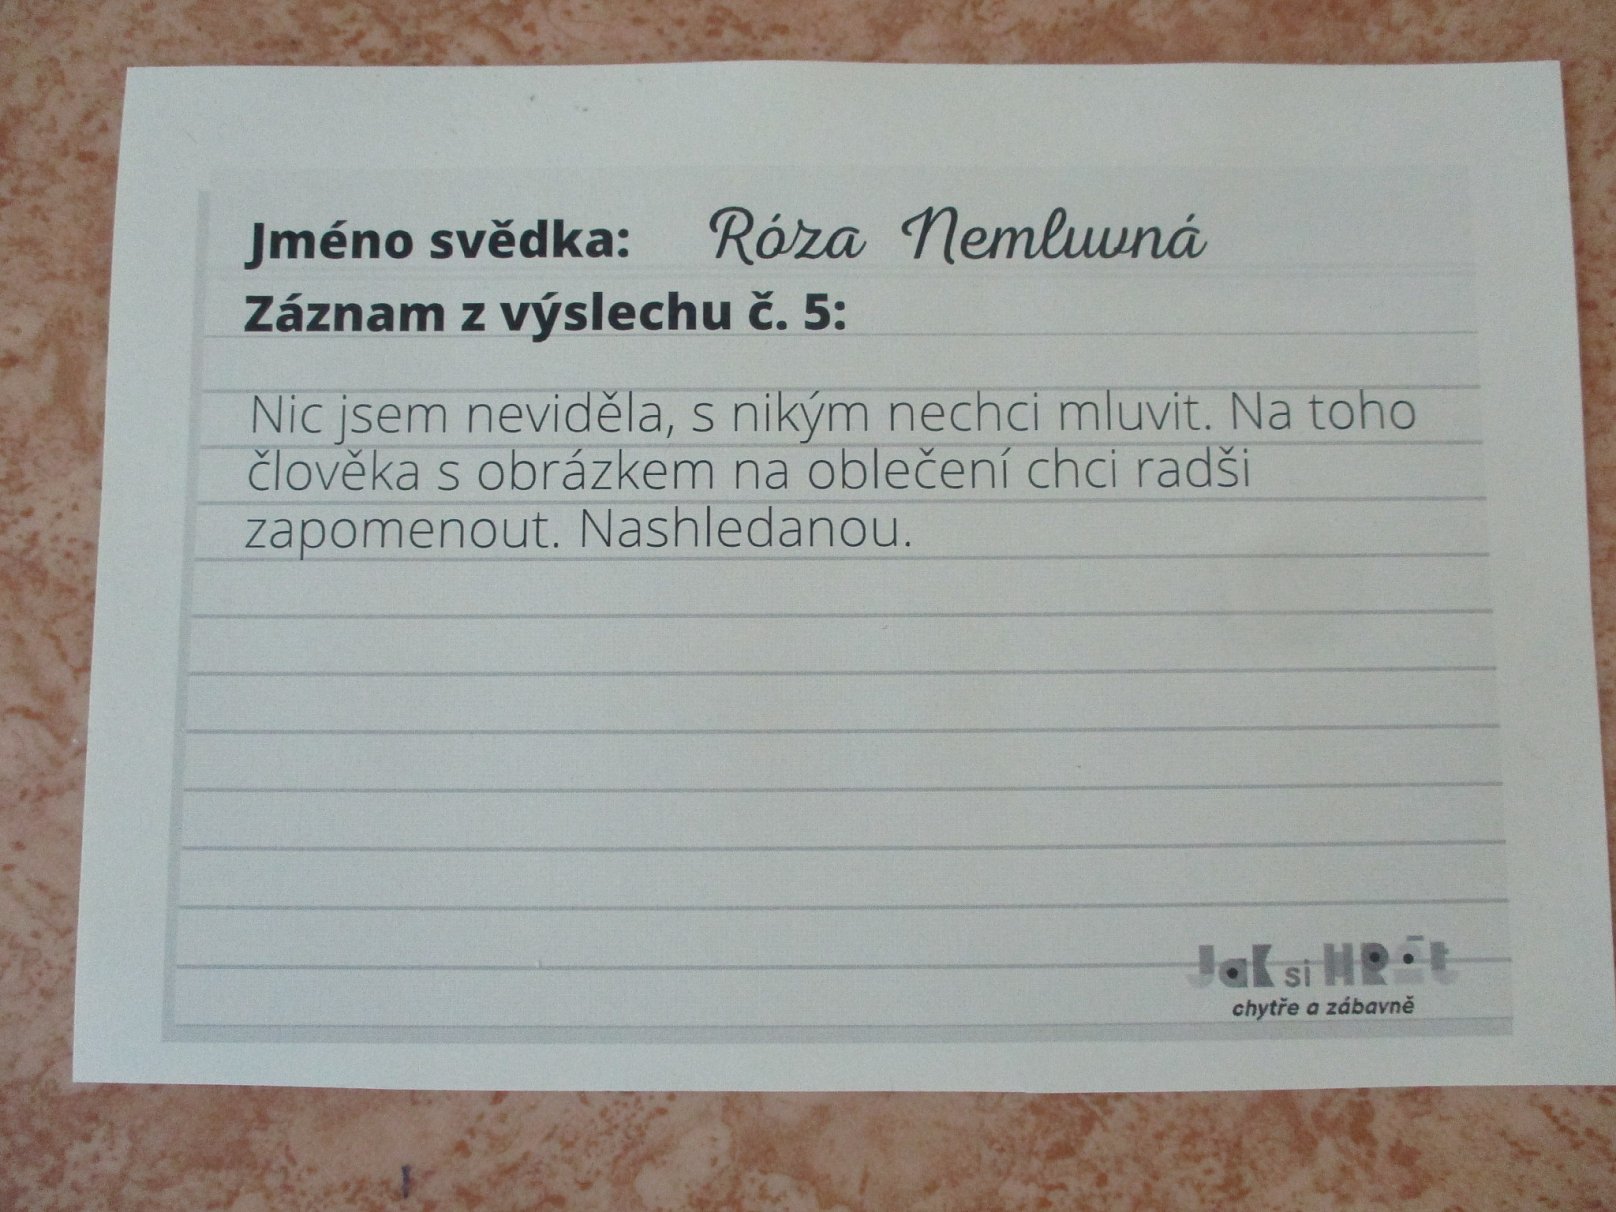 Jméno svědka: Róza Nemluvná
Záznam z výslechu č. 5:
Nic jsem neviděla, s nikým nechci mluvit. Na toho
člověka s obrázkem na oblečení chci radši
zapomenout. Nashledanou.
Jak si HRát
chytře a zábavně